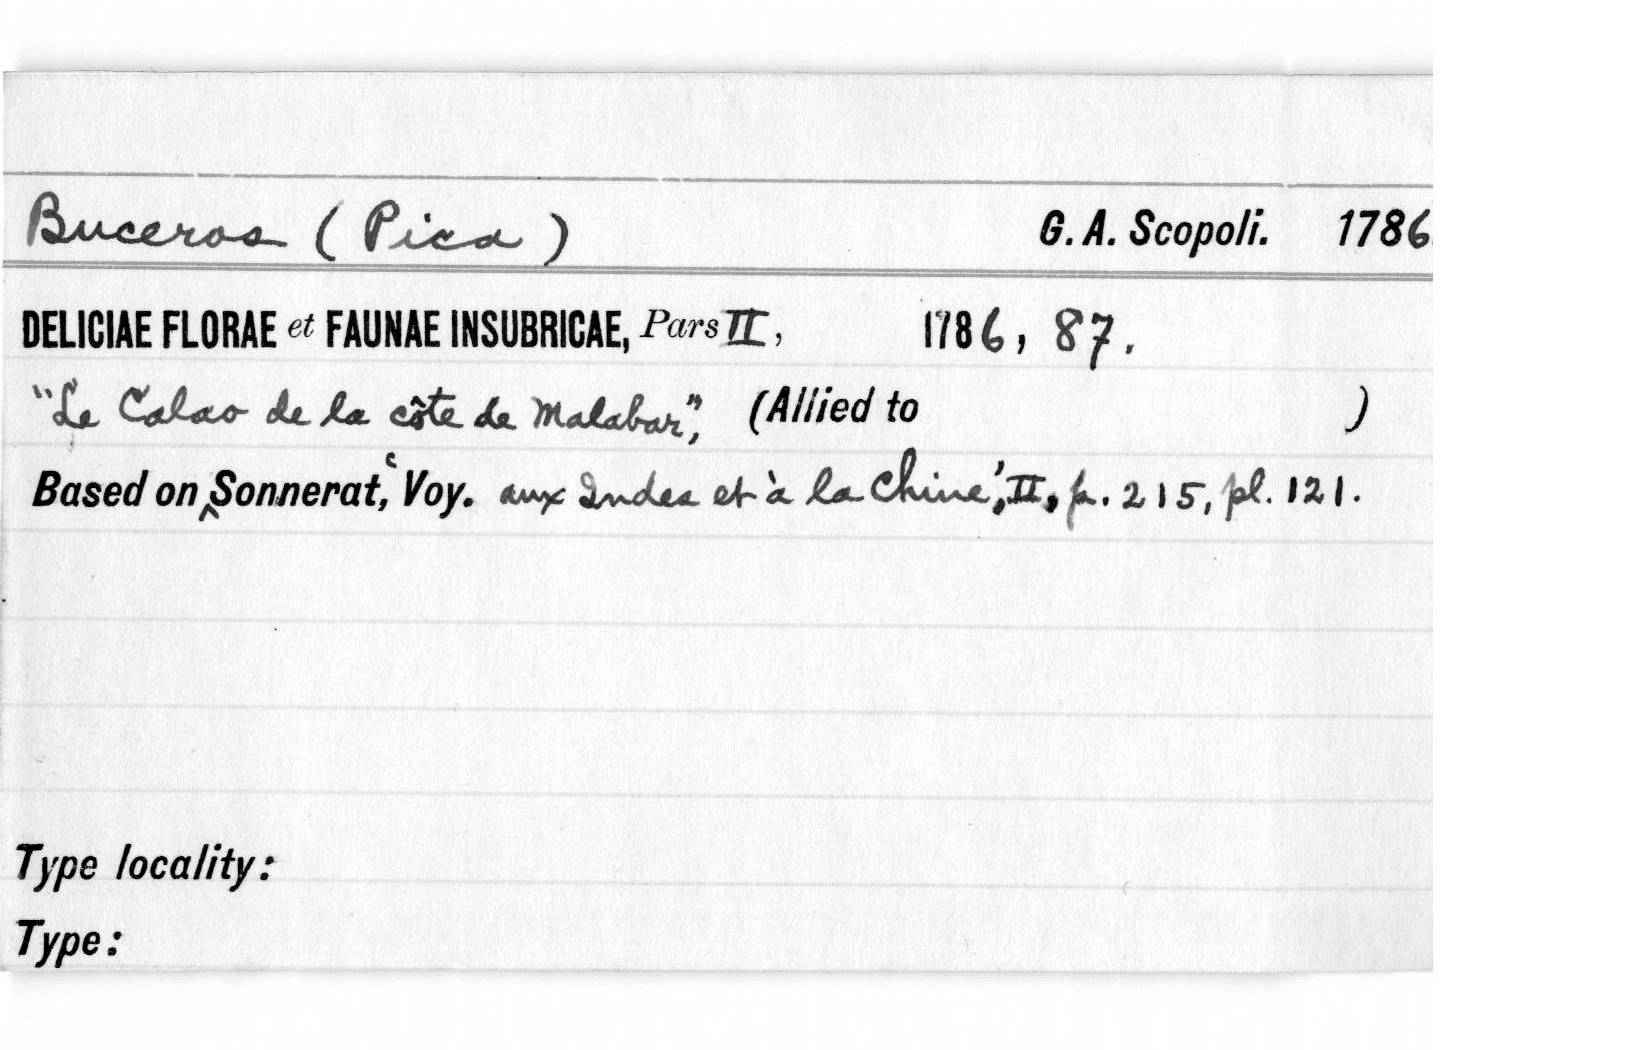 Buceros (Pica) G. A. Scopoli. 1786
DELICIAE FLORAE et FAUNAE INSUBRICAE, Pars II, 1786, 87.
"Le Calao de la côte de Malabar", (Allied to )
Based on Sonnerat, 'Voy. aux Indes et à la Chine', II, p. 215, pl. 121.
Type locality:
Type: